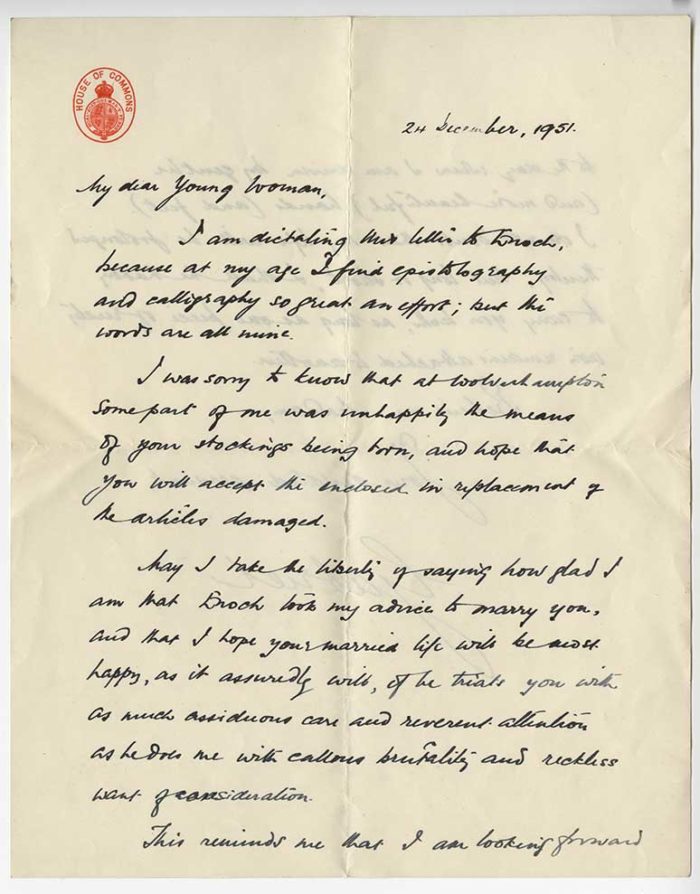 HOUSE OF COMMONS
24 December, 1951.
My dear Young Woman,
I am dictating this letter to Enoch,
because at my age I find epistolography
and calligraphy so great an effort; but the
words are all mine.
I was sorry to know that at Wolverhampton
some part of me was unhappily the means
of your stockings being torn, and hope that
you will accept the enclosed in replacement of
the articles damaged.
May I take the liberty of saying how glad I
am that Enoch took my advice to marry you,
and that I hope your married life will be most
happy, as it assuredly will, if he treats you with
as much assiduous care and reverent attention
as he does me with callous brutality and reckless
want of consideration.
This reminds me that I am looking forward